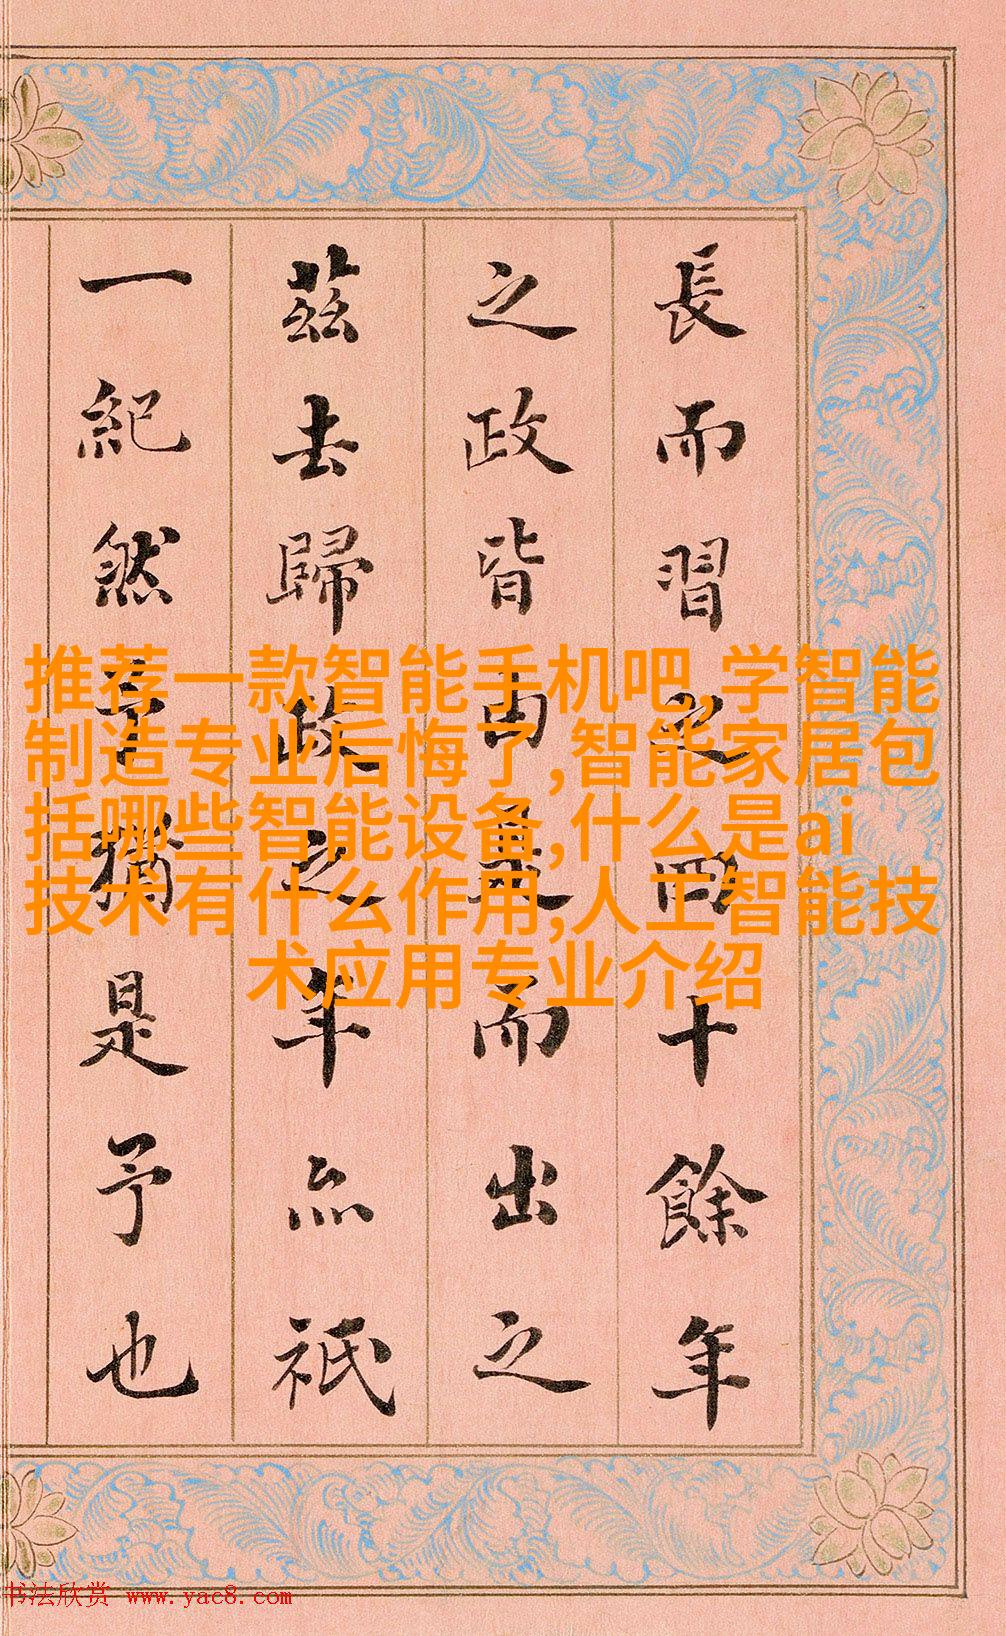 長而習之四十餘年
之政皆由而出之
茲去歸政之年亦祇
一紀然猶是予也
推荐一款智能手机吧,学智能
制造专业后悔了,智能家居包
括哪些智能设备,什么是ai
技术有什么作用,人工智能技
术应用专业介绍
书法欣赏 www.yac8.com